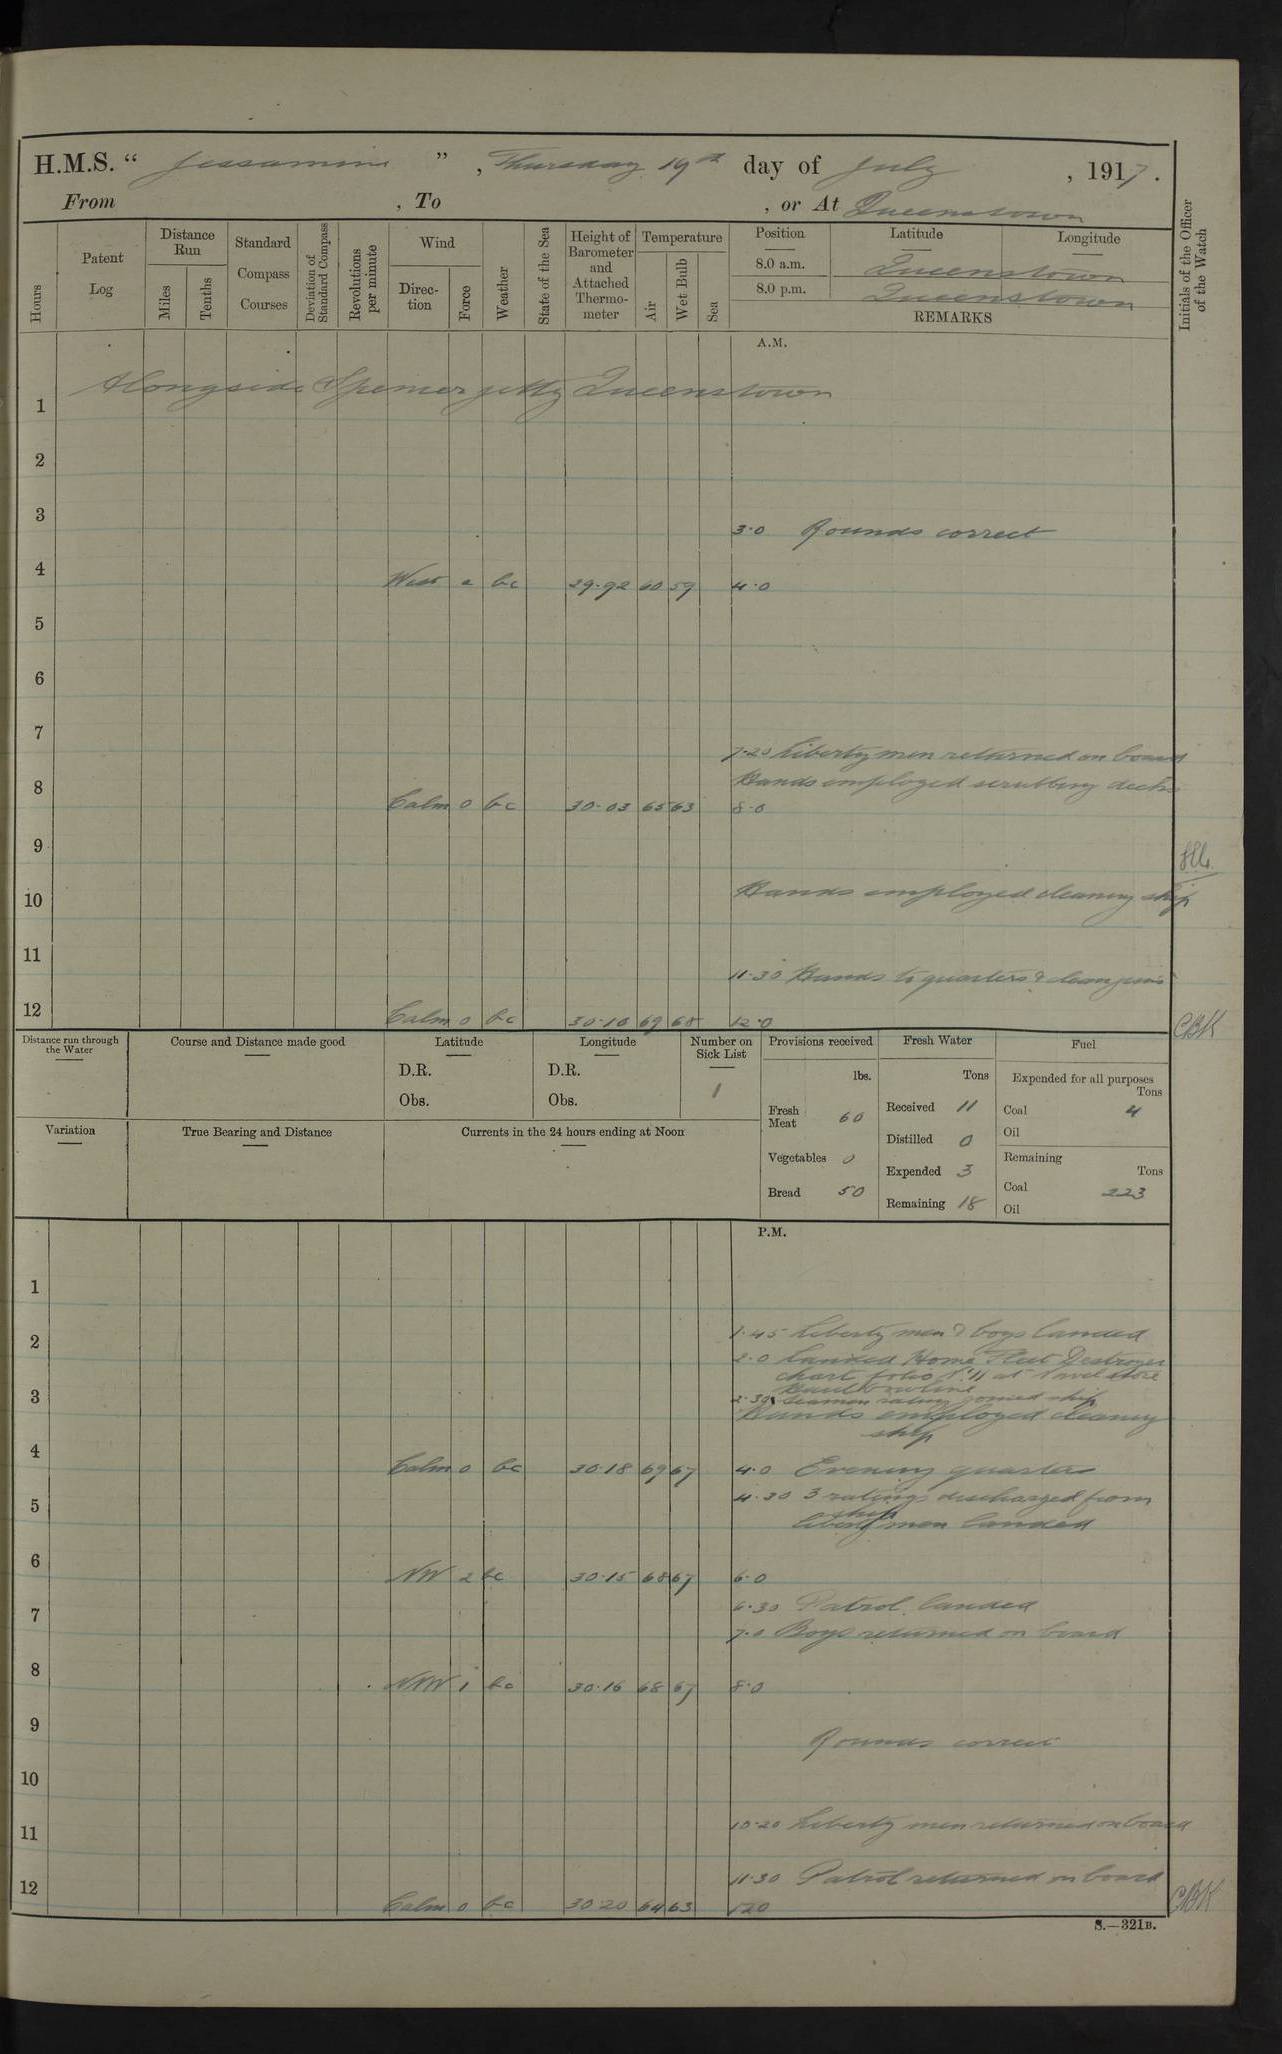 H.M.S. “ Jessamine ” , Thursday 19th day of July , 1917.
From , To , or At Queenstown
Hours
Patent Log
Distance Run
Miles
Tenths
Standard Compass Courses
Deviation of Standard Compass
Revolutions per minute
Wind
Direction
Force
Weather
State of the Sea
Height of Barometer and Attached Thermometer
Temperature
Air
Wet Bulb
Sea
Position Latitude Longitude
8.0 a.m. Queenstown
8.0 p.m. Queenstown
REMARKS
Initials of the Officer of the Watch
A.M.
Alongside Spencer jetty Queenstown
1
2
3
3.0 Rounds correct
4
West 2 bc 29.92 60 59 4.0
5
6
7
7.20 Liberty men returned on board
Hands employed scrubbing decks
8
Calm 0 bc 30.03 65 63 8.0
9
10
Hands employed cleaning ship
11
11.30 Hands to quarters & clean guns
12
Calm 0 bc 30.10 69 68 12.0
CBK
Distance run through the Water
Course and Distance made good
Latitude
D.R.
Obs.
Longitude
D.R.
Obs.
Number on Sick List
1
Provisions received
lbs.
Fresh Meat 60
Vegetables 0
Bread 50
Fresh Water
Tons
Received 11
Distilled 0
Expended 3
Remaining 18
Fuel
Expended for all purposes
Tons
Coal 4
Oil
Remaining
Tons
Coal 223
Oil
Variation
True Bearing and Distance
Currents in the 24 hours ending at Noon
P.M.
1
1.45 Liberty men & boys landed
2
2.0 Landed Home Fleet Destroyer
chart folio at Navel store
2.30 seaman rating joined ship
3
Hands employed cleaning
ship
4
Calm 0 bc 30.18 69 67 4.0 Evening quarters
4.30 3 ratings discharged from
ship
5
liberty men landed
6
NW 2 bc 30.15 68 67 6.0
6.30 Patrol landed
7
7.0 Boys returned on board
8
NNW 1 bc 30.16 68 67 8.0
9
Rounds correct
10
10.20 Liberty men returned on board
11
11.30 Patrol returned on board
12
Calm 0 bc 30.20 64 63 12.0
CBK
S.—321B.